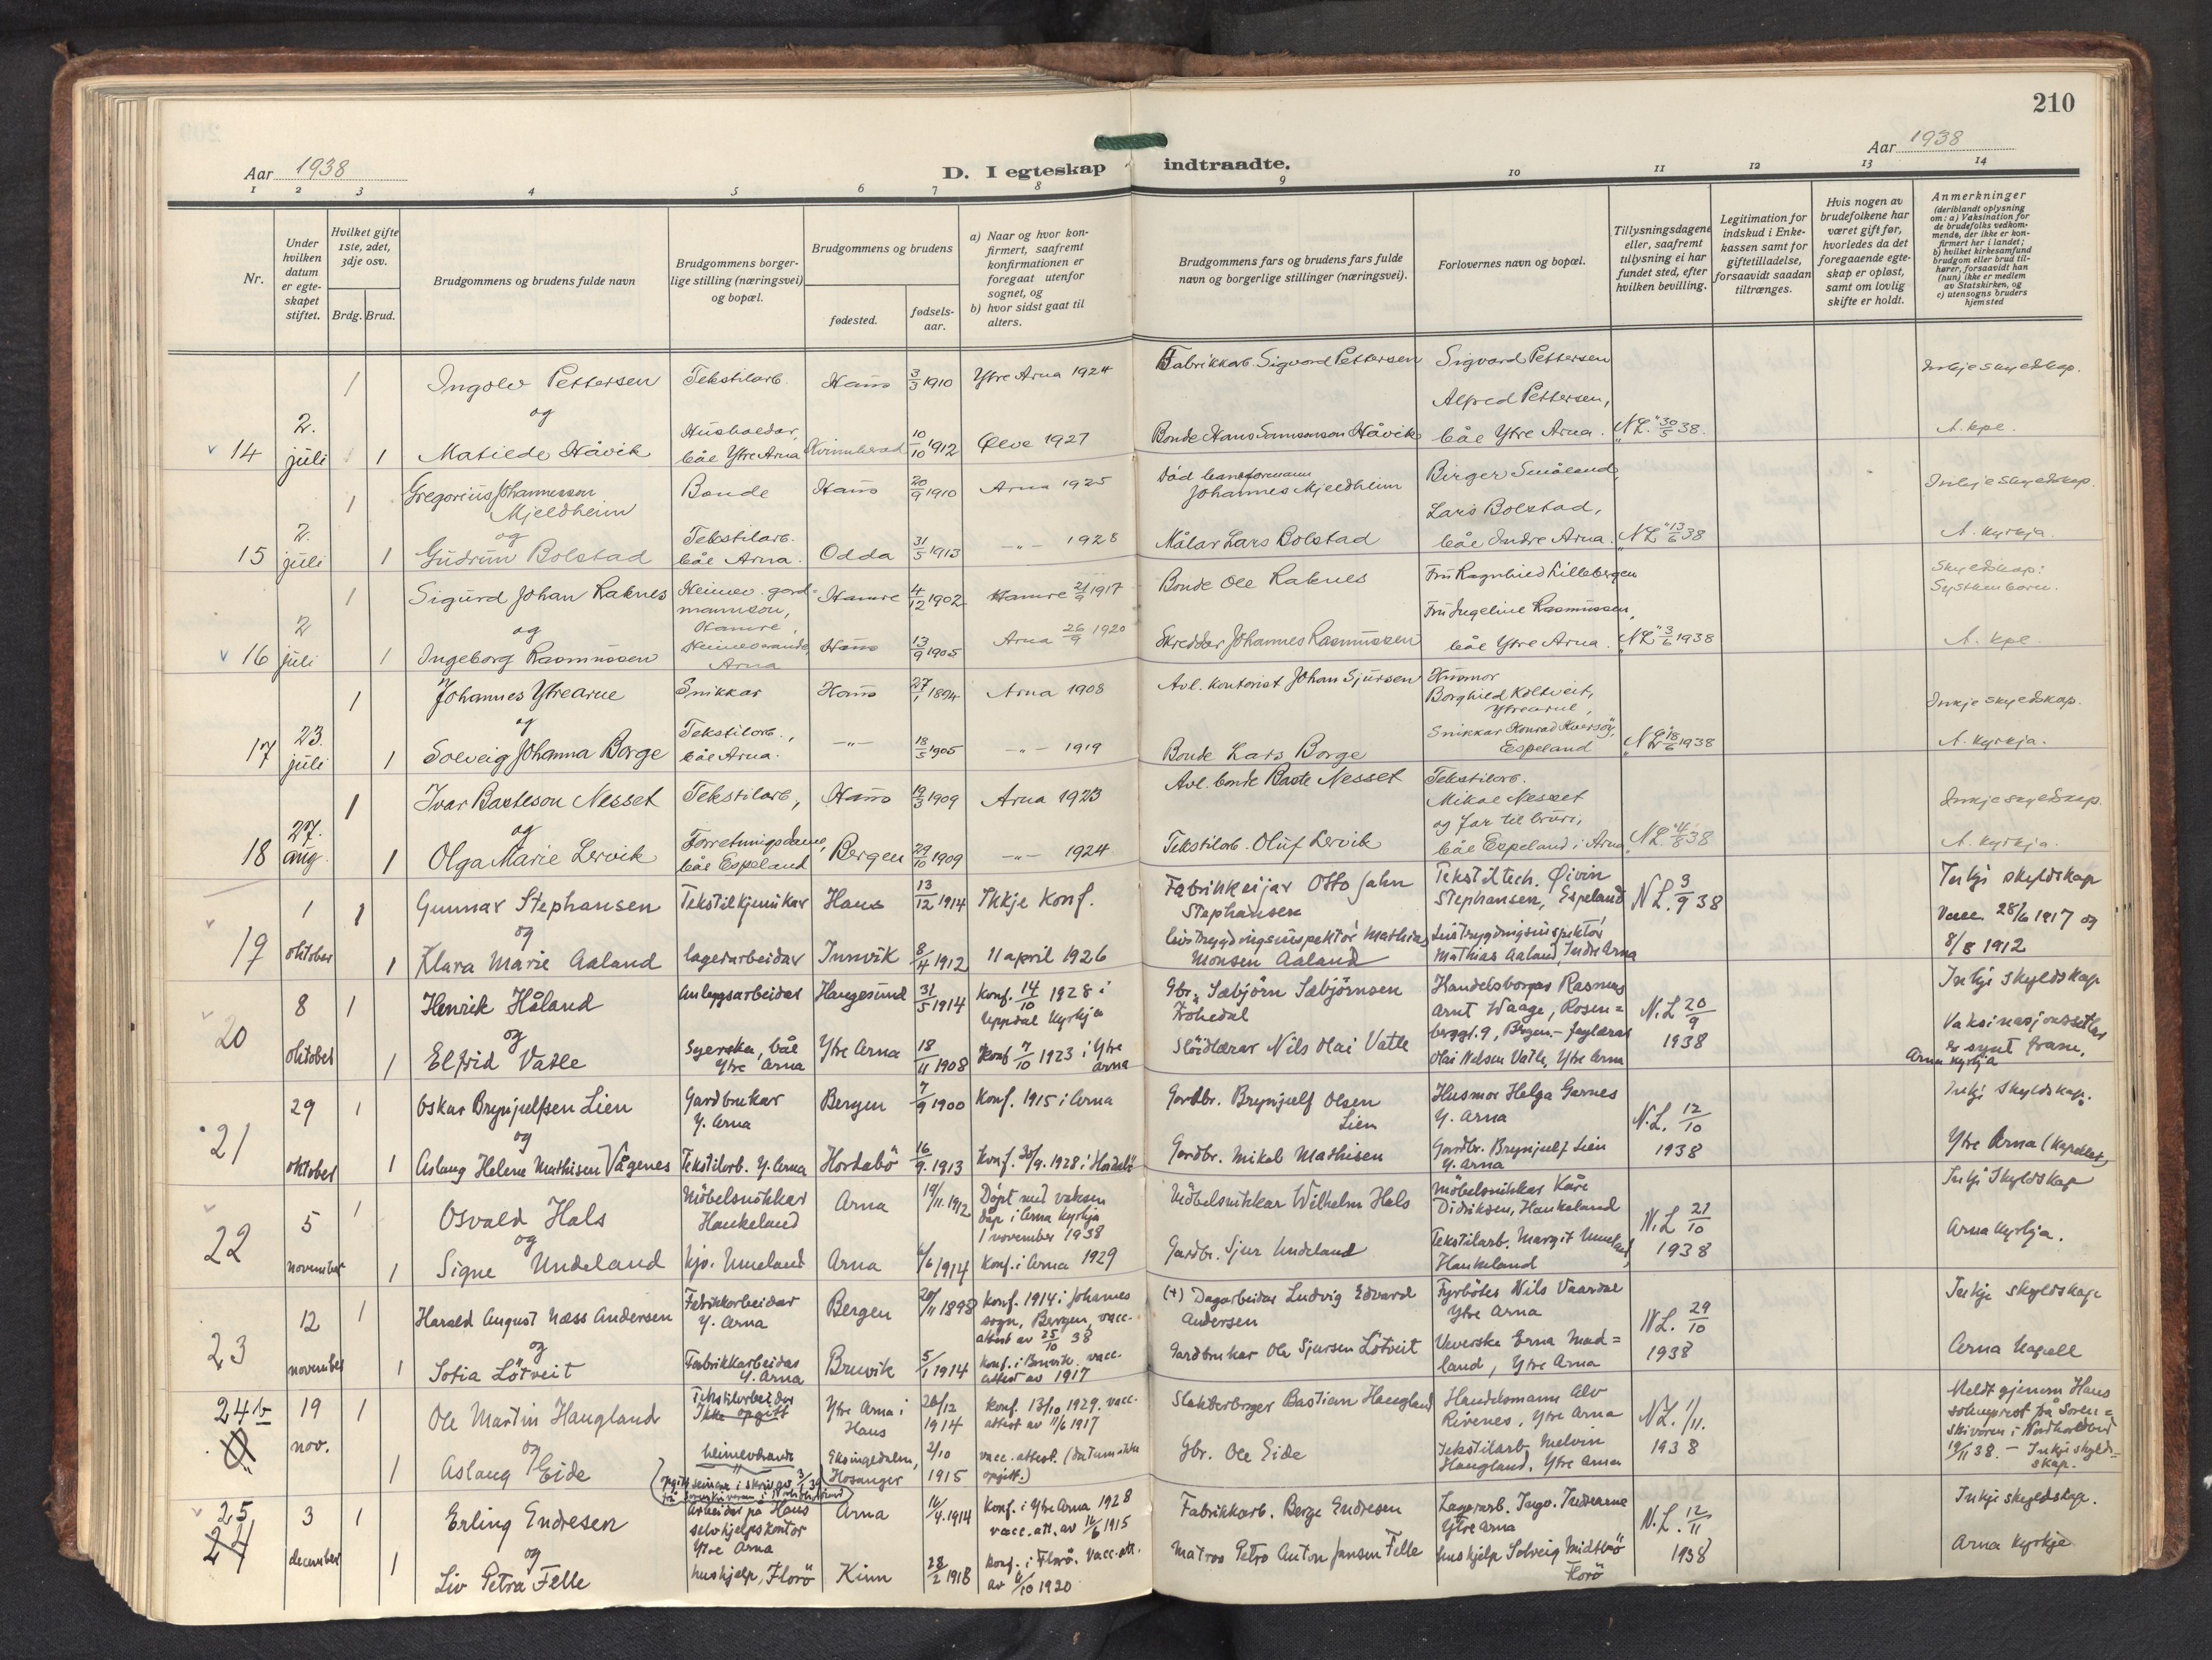 210
Aar 1938
D. I egteskap indtraadte.
Aar 1938
1 2 3 4 5 6 7 8 9 10 11 12 13 14
Nr.
Under hvilken datum er egteskapet stiftet.
Hvilket gifte 1ste, 2det, 3dje osv.
Brdg. Brud.
Brudgommens og brudens fulde navn
Brudgommens borgerlige stilling (næringsvei) og bopæl.
Brudgommens og brudens
fødested.
fødselsaar.
a) Naar og hvor konfirmert, saafremt konfirmationen er foregaat utenfor sognet, og
b) hvor sidst gaat til alters.
Brudgommens fars og brudens fars fulde navn og borgerlige stillinger (næringsvei).
Forlovernes navn og bopæl.
Tillysningsdagene eller, saafremt tillysning ei har fundet sted, efter hvilken bevilling.
Legitimation for indskud i Enkekassen samt for giftetilladelse, forsaavidt saadan tiltrænges.
Hvis nogen av brudefolkene har været gift før, hvorledes da det foregaaende egteskap er opløst, samt om lovlig skifte er holdt.
Anmerkninger
(deriblandt oplysning om: a) Vaksination for de brudefolks vedkommende, der ikke er konfirmert her i landet; b) hvilket kirkesamfund brudgom eller brud tilhører, forsaavidt han (hun) ikke er medlem av Statskirken, og c) utensogns bruders hjemsted
14 2. juli
1 Ingolv Pettersen Tekstilarb. Haus 3/3 1910 Ytre Arna 1924 Fabrikkarb. Sigvard Pettersen Sigvard Pettersen Inkje skyldskap.
og Alfred Pettersen,
1 Matilde Håvik Husholdar, båe Ytre Arna Kvinnherad 10/10 1912 Ølve 1927 Bonde Hans Samsonson Håvik båe Ytre Arna. N.L. 30/5 38. A. kpl.
15 2. juli
1 Gregorius Johannesson Mjeldheim Bonde Haus 20/9 1910 Arna 1925 Johannes Mjeldheim Birger Småland, Inkje skyldskap.
og Lars Bolstad,
1 Gudrun Bolstad Tekstilarb. båe Arna. Odda 31/5 1913 -"- 1928 Målar Lars Bolstad båe Indre Arna. N.L. 13/6 38 A. kyrkja
16 2 juli
1 Sigurd Johan Raknes Hamre 4/12 1902 Hamre 21/9 1917 Bonde Ole Raknes Fru Ragnhild Lillebergen Skyldskap: Syskenborn.
og Fru Ingeline Rasmussen,
1 Ingeborg Rasmussen Heimeverande, Arna Haus 13/9 1905 Arna 26/9 1920 Skreddar Johannes Rasmussen båe Ytre Arna. N.L. 3/6 1938 A. kpl.
17 23. juli
1 Johannes Ytrearne Snikkar Haus 27/1 1894 Arna 1908 Avl. kontorist Johan Sjursen Husmor Borghild Koltveit, Ytrearne, Inkje skyldskap.
og
1 Solveig Johanna Borge Tekstilarb., båe Arna. -"- 18/5 1905 -"- 1919 Bonde Lars Borge Snikkar Konrad Kversøy, Espeland N.L. 18/6 1938 A. kyrkja.
18 27. aug.
1 Ivar Basteson Nesset Tekstilarb, Haus 19/3 1909 Arna 1923 Avl. bonde Baste Nesset Tekstilarb. Mikal Nesset Inkje skyldskap.
og og far til bruri,
1 Olga Marie Lervik Forretningsdame, båe Espeland Bergen 29/10 1909 -"- 1924 Tekstilarb. Oluf Lervik båe Espeland i Arna N.L. 4/8 38 A. kyrkja.
19 1 oktober
1 Gunnar Stephansen Tekstilkjemikar Haus 13/12 1914 Ikkje Konf. Fabrikkeijar Otto Jahn Stephansen Tekstiltech. Øivin Stephansen, Espeland N.L. 3/9 38 Inkje skyldskap
og Vacc. 28/6 1917 og 8/8 1912
1 Klara Marie Aaland lagerarbeidar Innvik 8/4 1912 11 april 1926 livstrygdingsinspektør Mathias Monsen Aaland Livstrygdingsinspektør Mathias Aaland, Indre Arna
20 8 oktober
1 Henrik Håland Anleggsarbeidar Haugesund 31/5 1914 Konf. 14/10 1928 i Uppdal kyrkja Gbr. Sæbjörn Sæbjörnsen Handelsborgar Rasmus Arnt Waage, Rosenberggt. 9, Bergen. N.L. 20/9 1938 Inkje skyldskap
og Vaksinasjonssetlar er synt fram.
1 Elfrid Vatle Syerska, båe Ytre Arna Ytre Arna 18/11 1908 Konf. 7/10 1923 i Ytre Arna Slöidlærar Nils Olai Vatle faglærar Olai Nilsen Vatle, Ytre Arna Arna kyrkja
21 29 oktober
1 Oskar Brynjulfsen Lien Gardbrukar Y. Arna Bergen 7/9 1900 Konf. 1915 i Arna Gardbr. Brynjulf Olsen Lien Husmor Helga Garnes Y. Arna N.L. 12/10 1938 Inkje skyldskap.
og
1 Aslaug Helene Mathisen Vågenes Tekstilarb. Y. Arna Hordabö 16/9 1913 Konf. 30/9. 1928 i Hordabö Gardbr. Mikal Mathisen Gardbr. Brynjulf Lien Y. Arna Ytre Arna (Kapellet)
22 5 november
1 Osvald Hals Möbelsnikkar Haukeland Arna 19/11. 1912 Döpt med vaksen dåp i Arna kyrkja 1 november 1938 Möbelsnikkar Wilhelm Hals Möbelsnikkar Kåre Didriksen, Haukeland N.L. 21/10 1938 Inkje Skyldskap
og
1 Signe Undeland Arna 6/6 1914 Konf. i Arna 1929 Gardbr. Sjur Undeland Tekstilarb. Margit Unneland, Haukeland Arna kyrkja.
23 12 november
1 Harald August Næss Andersen Fabrikkarbeidar Y. Arna Bergen 20/11 1898 Konf. 1914 i Johannes sogn, Bergen, vacc. attest av 25/10 38 (+) Dagarbeidar Ludvig Edvard Andersen Fyrböter Nils Vaardal Ytre Arna N.L. 29/10 1938 Inkje skyldskap
og
1 Sofia Lötveit Fabrikkarbeidar Y. Arna Bruvik 5/1 1914 Konf. i Bruvik. vacc. attest av 1917 Gardbrukar Ole Sjursen Lötveit Veverske Erna Madland, Ytre Arna Arna Kapell
24b 19 nov.
1 Ole Martin Haugland Tekstilarbeidar Ikke opgitt Ytre Arna i Haus 26/12 1914 Konf. 13/10 1929. vacc. attest av 11/6 1917 Slakterborger Bastian Haugland Handelsmann Alv Rivenes, Ytre Arna N.L. 1/11. 1938 Meldt gjenom Haus sokneprest frå Sorenskrivaren i Nordhordland 19/11 38. - Inkje skyldskap.
og
1 Aslaug Eide heimeverande Eksingedalen, Hosanger 2/10 1915 vacc. attest. (datum ikke opgitt.) Gbr. Ole Eide Tekstilarb. Melvin Haugland, Ytre Arna
25 24 3 december
1 Erling Endresen Arbeidar på Haus selvhjelpskontor Ytre Arna Arna 16/4. 1914 Konf. i Ytre Arna 1928 vacc. att. av 16/6 1915 Fabrikkarb. Berge Endresen Lagerarb. Ingv. Indrearne Ytre Arna N.L. 12/11 1938 Inkje skyldskap.
og
1 Liv Petra Felle huskjelp, Florö Kinn 28/2 1918 Konf. i Florö. Vacc. att. av 6/10 1920 Matros Petro Anton Jansen Felle huskjelp Solveig Midtbö Florö Arna Kyrkje